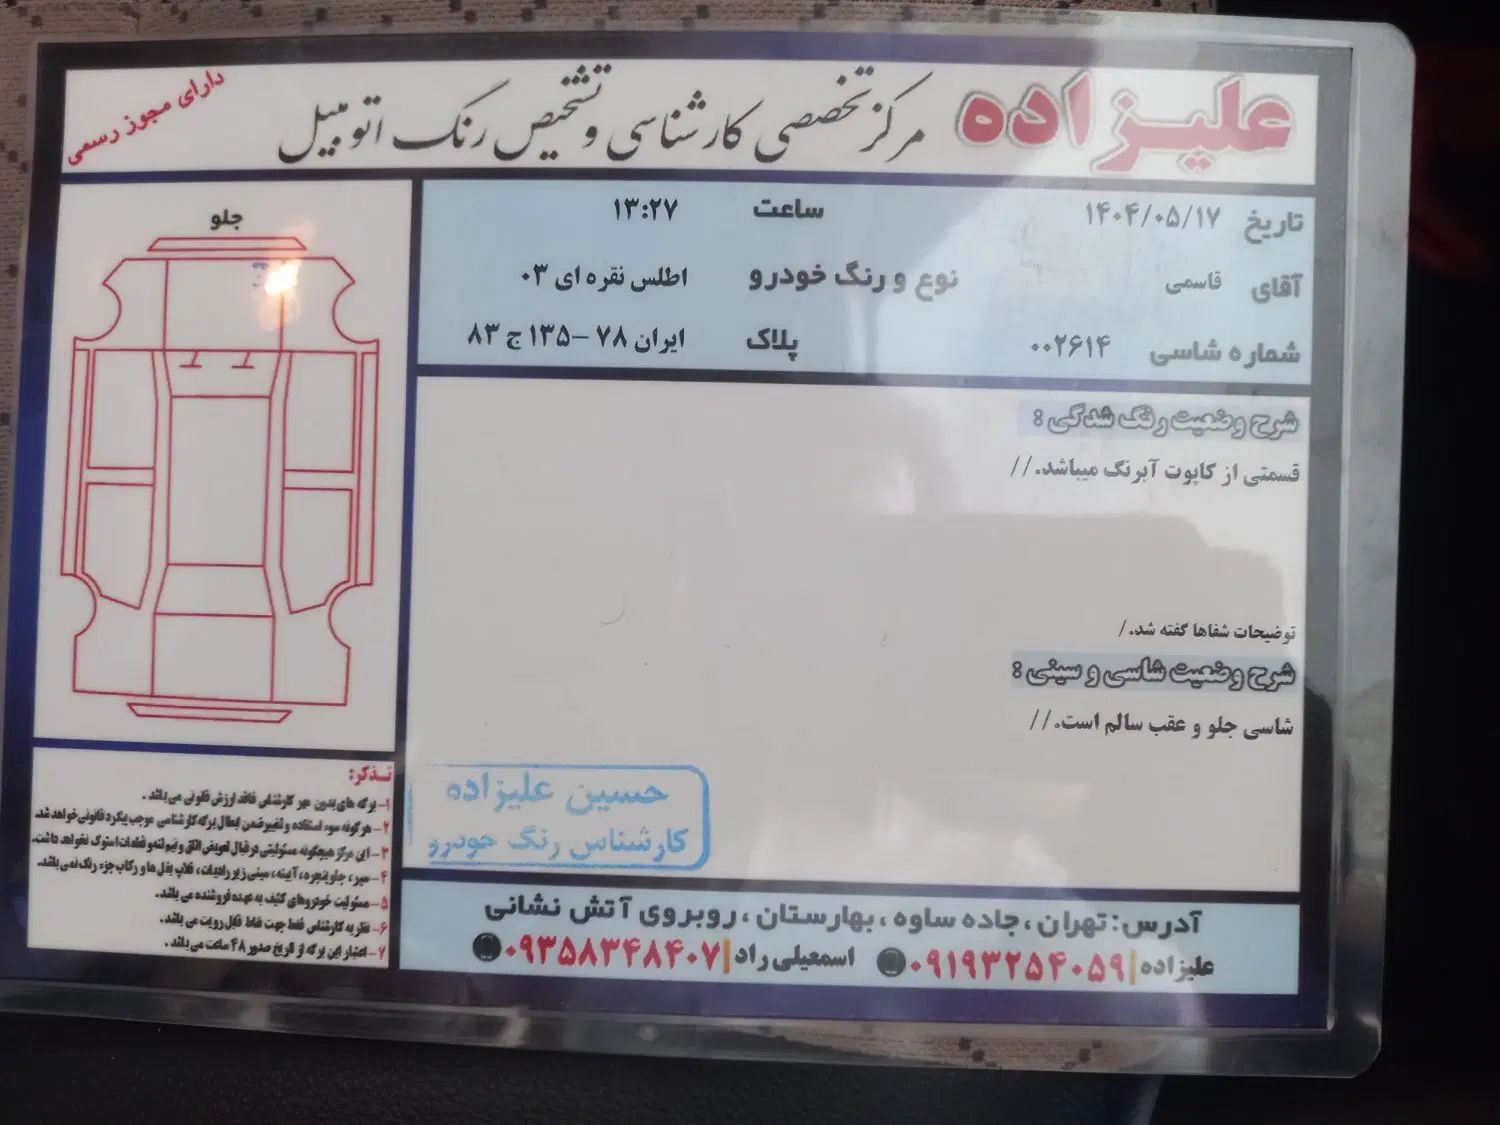 علیزاده مرکز تخصصی کارشناسی و تشخیص رنگ اتومبیل
دارای مجوز رسمی
تاریخ ۱۴۰۴/۰۵/۱۷ ساعت ۱۳:۲۷
آقای قاسمی نوع و رنگ خودرو اطلس نقره ای ۰۳
شماره شاسی ۰۰۲۶۱۴ پلاک ایران ۷۸ –۱۳۵ ج ۸۳
شرح وضعیت رنگ شدگی :
قسمتی از کاپوت آبرنگ میباشد.//
توضیحات شفاها گفته شد./
شرح وضعیت شاسی و سینی :
شاسی جلو و عقب سالم است.//
حسین علیزاده
کارشناس رنگ خودرو
آدرس: تهران ، جاده ساوه ، بهارستان ، روبروی آتش نشانی
علیزاده | ۰۹۱۹۳۲۵۴۰۵۹ اسمعیلی راد | ۰۹۳۵۸۳۴۸۴۰۷
جلو
تذکر:
۱- برگه های بدون مهر کارشناس فاقد ارزش قانونی می باشد .
۲- هرگونه سوء استفاده و تغییر ضمن ابطال برگه کارشناسی موجب پیگرد قانونی خواهد شد.
۳- این مرکز هیچگونه مسئولیتی در قبال تعویض اتاق و نیم تنه و قطعات استوک نخواهد داشت.
۴- سپر ، جلوپنجره ، آیینه ، سینی زیر رادیات ، قلاب بغل ها و رکاب جزء رنگ نمی باشد.
۵- مسئولیت خودروهای کثیف به عهده فروشنده می باشد.
۶- نظریه کارشناس فقط جهت نقاط قابل رویت می باشد.
۷- اعتبار این برگه از تاریخ صدور ۴۸ ساعت می باشد .